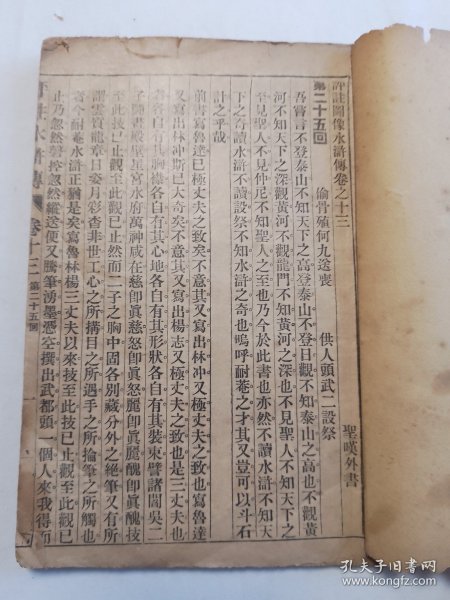 評註圖像水滸傳卷之十三
聖嘆外書
第二十五回
偷骨殖何九送喪
供人頭武二設祭
吾嘗言不登泰山不知天下之高登泰山不登日觀不知泰山之高也不觀黃
河不知天下之深觀黃河不觀龍門不知黃河之深也不見聖人不知天下之
至見聖人不見仲尼不知聖人之至也乃今於此書也亦然不讀水滸不知天
下之奇讀水滸不讀設祭不知水滸之奇也嗚呼耐菴之才其又豈可以斗石
計之乎哉
前書寫魯達已極丈夫之致矣不意其又寫出林冲又極丈夫之致也寫魯達
又寫出林冲斯已大奇矣不意其又寫出楊志又極丈夫之致也是三丈夫也
者各自有其胸襟各自有其心地各自有其形狀各自有其裝束譬諸閻吳二
子鬭畫殿壁星宮水府萬神咸在慈即眞慈怒即眞怒麗即眞麗醜即眞醜技
至此技已止觀至此觀已止然而二子之胸中固各別藏分外之絕筆又有所
謂雲質龍章日姿月彩杳非世工心之所搆目之所遇手之所掄筆之所觸也
者今耐菴水滸正猶是矣寫魯林楊三丈夫以來技至此技已止觀至此觀已
止乃忽然磬控忽然縱送便又騰筆湧墨憑空撰出武都頭一個人來我得而
評註水滸傳
卷十三
第二十五回
一
孔夫子旧书网